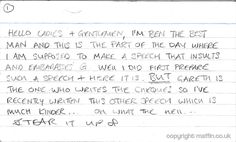 1
HELLO LADIES + GENTLEMEN, I'M BEN THE BEST
MAN AND THIS IS THE PART OF THE DAY WHERE
I AM SUPPOSED TO MAKE A SPEECH THAT INSULTS
AND EMBARASSES G WELL I DID FIRST PREPARE
SUCH A SPEECH + HERE IT IS. BUT GARETH IS
THE ONE WHO WRITES THE CHEQUES SO I'VE
RECENTLY WRITTEN THIS OTHER SPEECH WHICH IS
MUCH KINDER.. OH WHAT THE HELL...
TEAR IT UP
copyright: matfin.co.uk